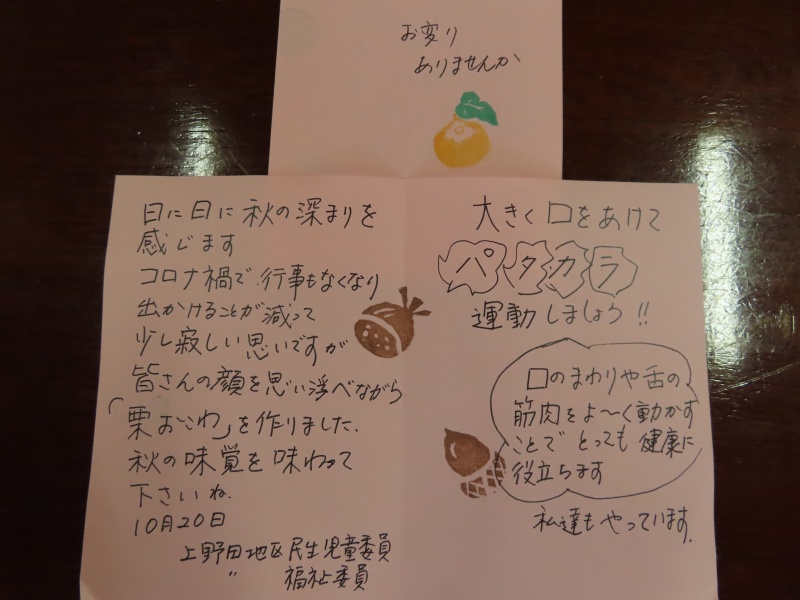 お変り
ありませんか
日に日に秋の深まりを
感じます
コロナ禍で、行事もなくなり
出かけることが減って
少し寂しい思いですが
皆さんの顔を思い浮べながら
「栗おこわ」を作りました。
秋の味覚を味わって
下さいね。
10月20日
上野田地区民生児童委員
〃 福祉委員
大きく口をあけて
パタカラ
運動しましょう!!
口のまわりや舌の
筋肉をよ〜く動かす
ことでとっても健康に
役立ちます
私達もやっています。